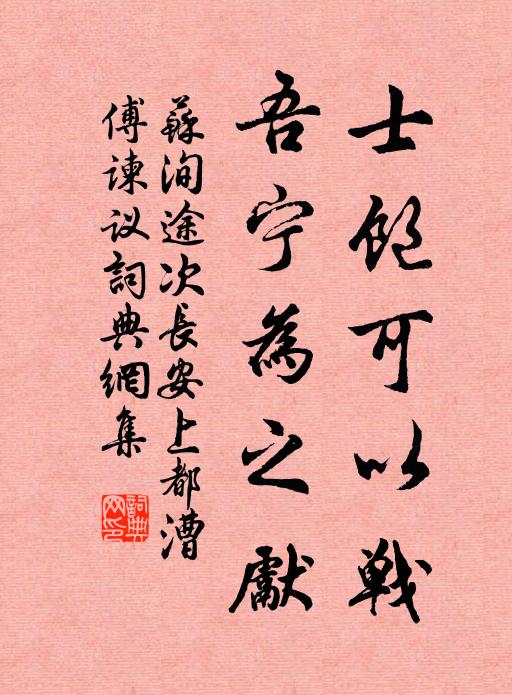 士飽可以戦
吾宁為之獻
蘇洵途次長安上都漕
傅諫议詞典網集
詞典网印